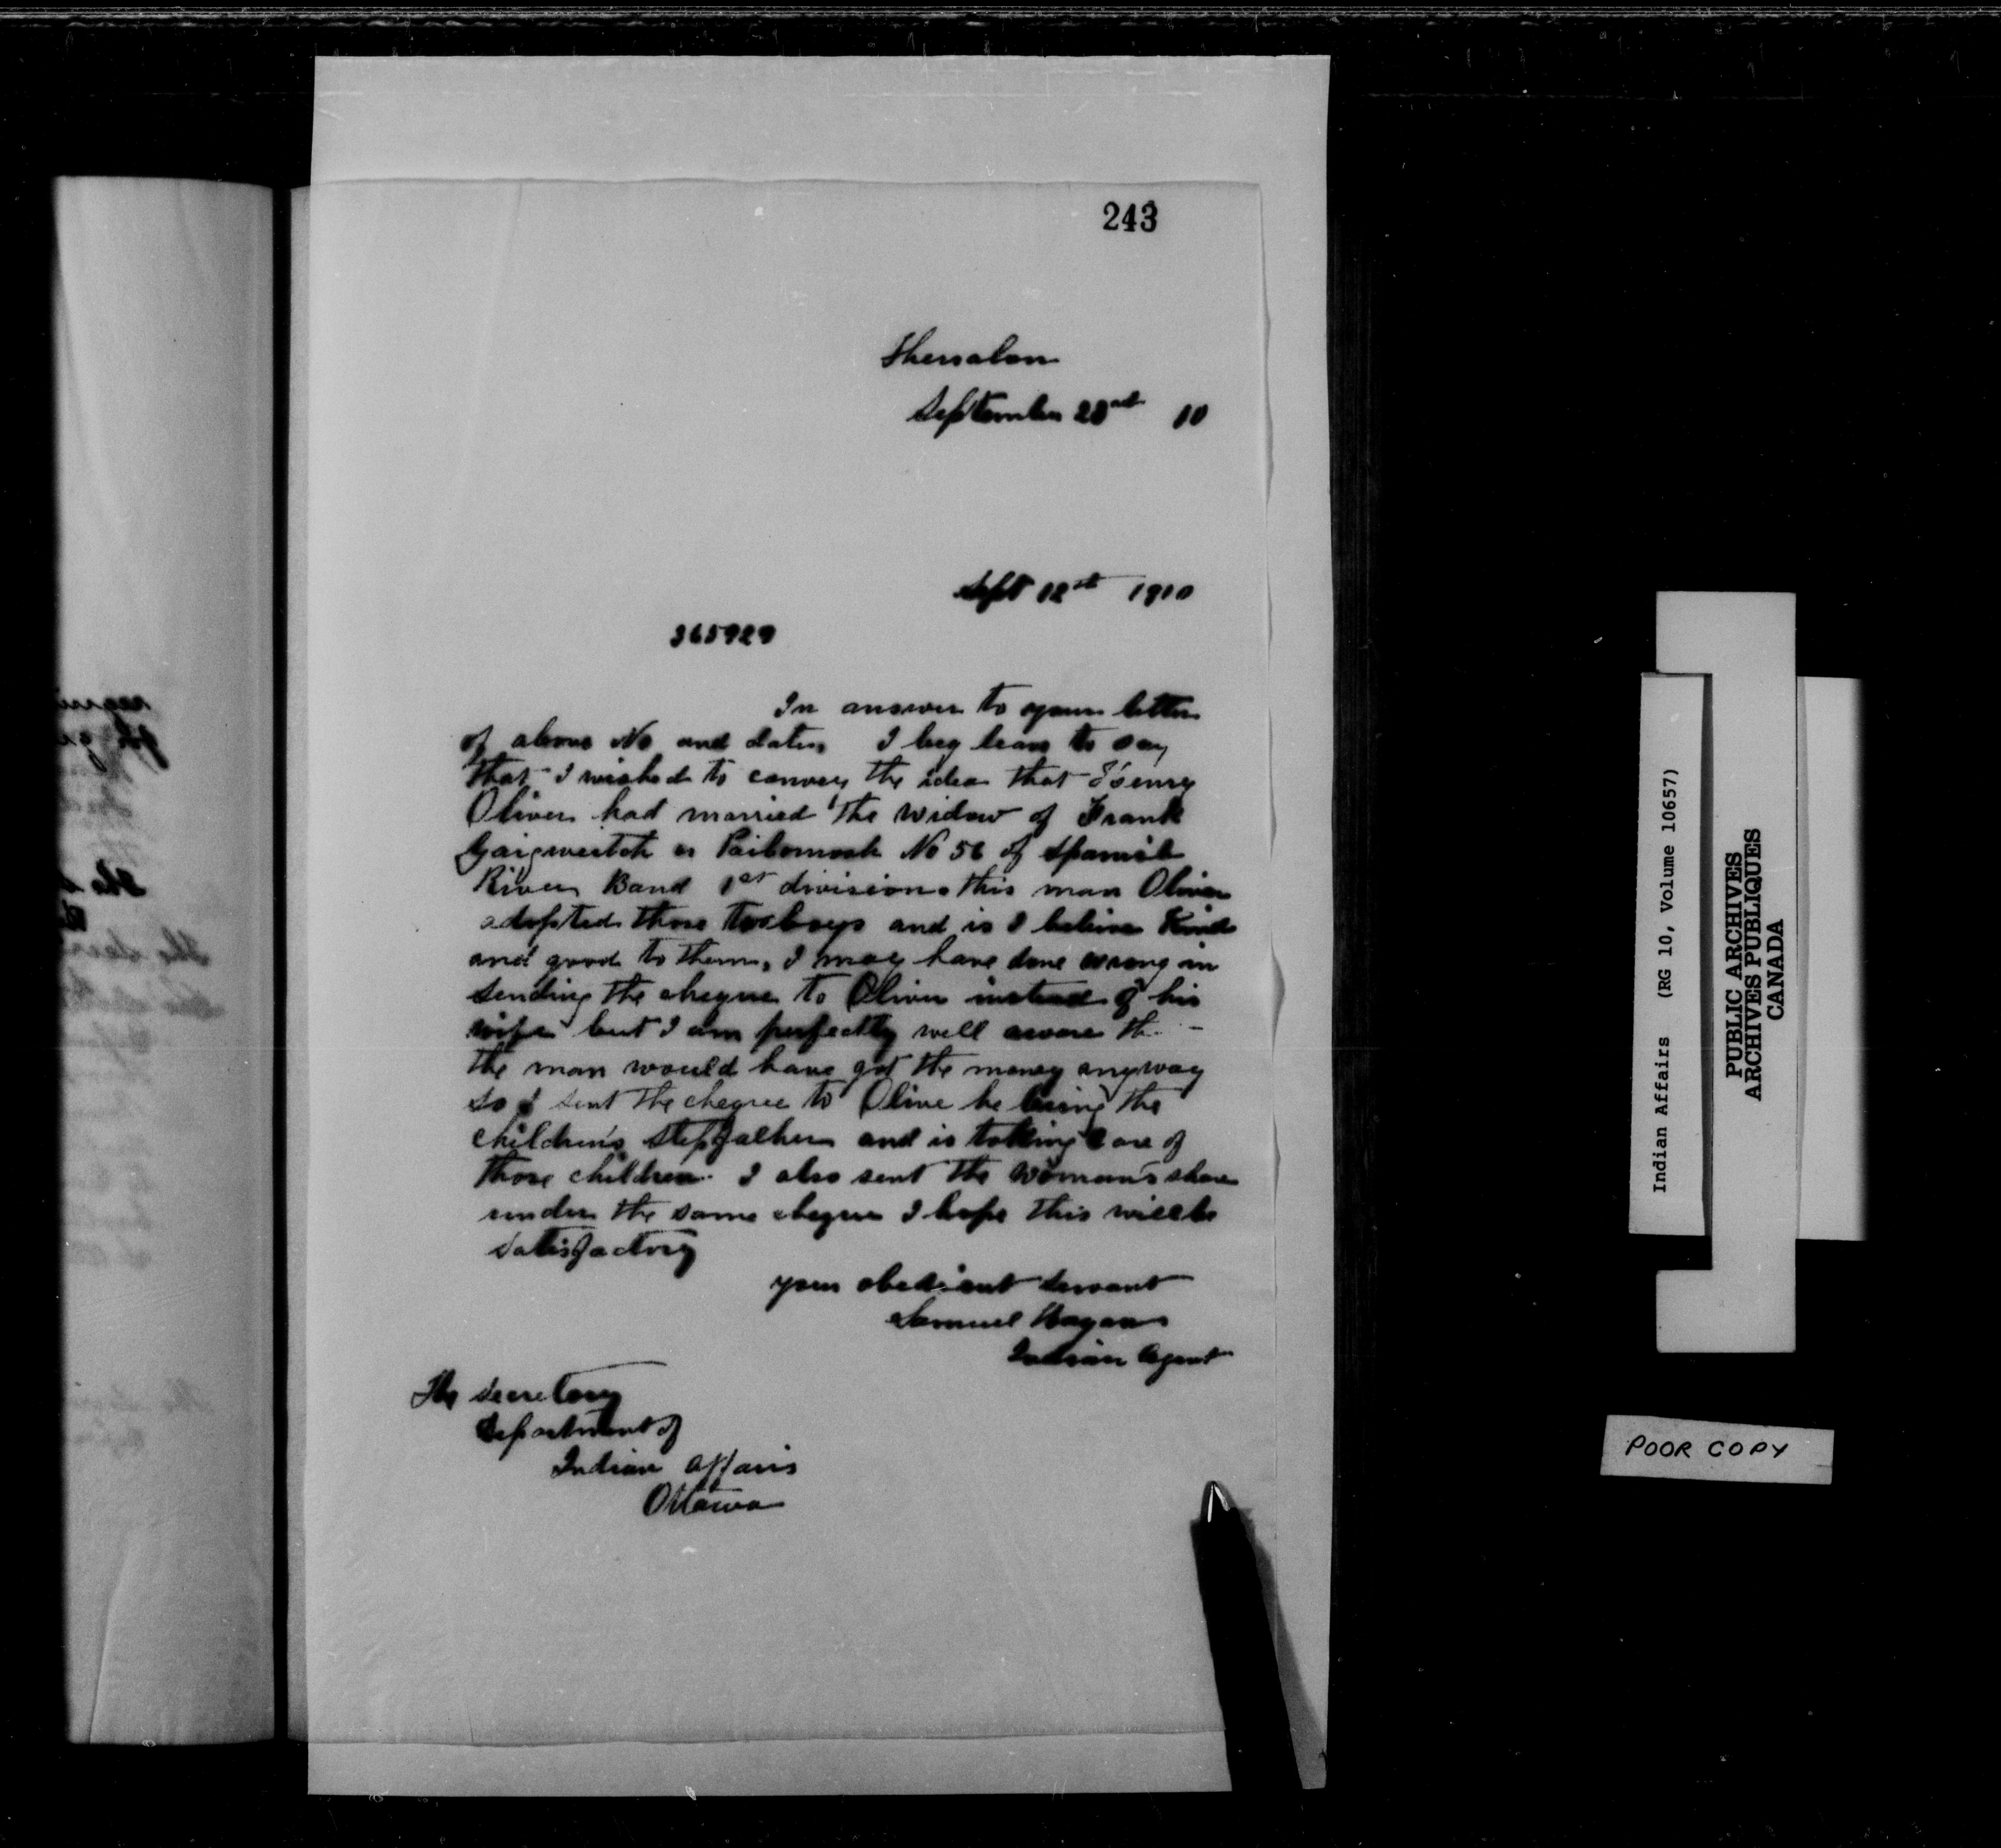 243
Thessalon
September 23rd 10
Sept 12th 1910
365929
In answer to your letter
of above No and date, I beg leave to say
that I wished to convey the idea that Henry
Oliver had married the widow of Frank
or No 56 of Spanish
River Band 1st division. this man Oliver
adopted those two boys and is I believe kind
and good to them, I may have done wrong in
sending the cheque to Oliver instead of his
wife but I am perfectly well aware
the man would have got the money anyway
so I sent the cheque to Olive he being the
children's stepfather and is taking care of
those children. I also sent the woman's share
under the same cheque I hope this will be
satisfactory
your obedient servant
Samuel Hagan
Indian Agent
The Secretary
Department of
Indian Affairs
Ottawa
Indian Affairs (RG 10, Volume 10657)
PUBLIC ARCHIVES
ARCHIVES PUBLIQUES
CANADA
POOR COPY